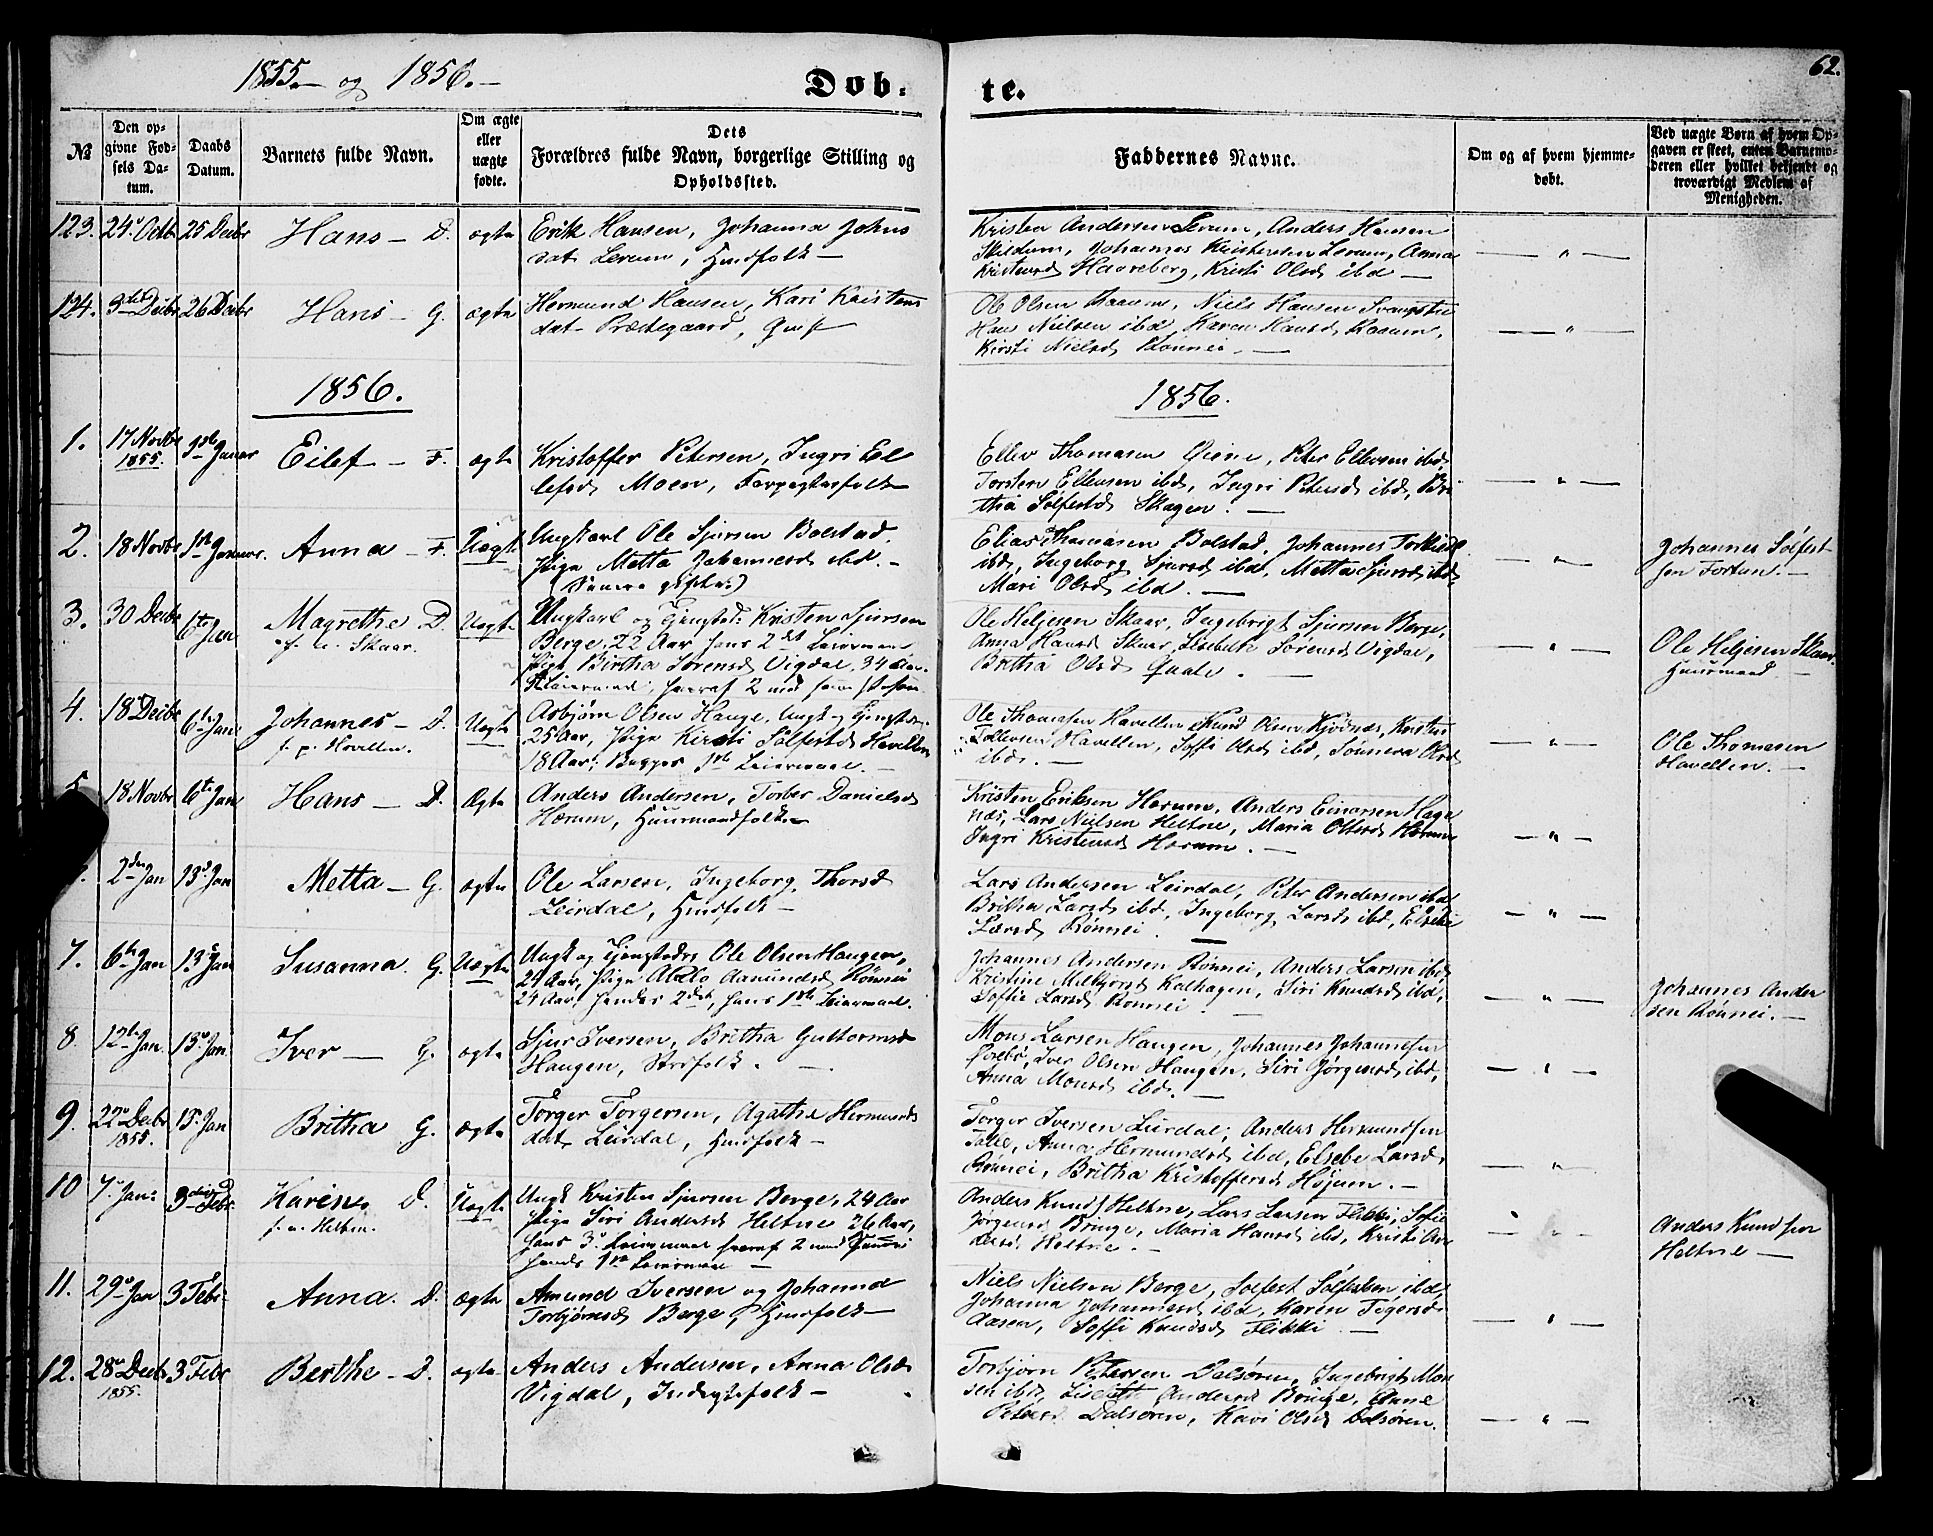 1855 og 1856.
Døb-
te.
62.
№
Den op-
givne Fød-
sels Da-
tum.
Daabs
Datum.
Barnets fulde Navn.
Om ægte
eller
uægte
fødte.
Dets
Forældres fulde Navn, borgerlige Stilling og
Opholdssted.
Faddernes Navne.
Om og af hvem hjemme-
døbt.
Ved uægte Børn af hvem Op-
gaven er skeet, enten Barnemo-
deren eller hvilket bekjendt og
troværdigt Medlem af
Menigheden.
123. 24 Octb. 25 Decbr Hans - D. ægte
Erik Hansen, Johanna Johns
dat Lerum, Husfolk
Kristen Andersen Lerum, Anders Hansen
Skildum, Johannes Kristensen Lerum, Anna
Kristensd Haareberg, Kristi Olsd ibd
124. 3die Decbr 26 Decbr Hans - G. ægte
Hermund Hansen, Kari Kristens
dat Prædegaard,
Ole Olsen Kaarum, Niels Hansen
Hans Nielsen ibd, Karen Hansd Kaarum,
Kirsti Nielsd Rønnei.
1856.
1856.
1. 17 Novbr 1855. 1ste Januar Eilef - F. ægte
Kristoffer Petersen, Ingri Ei
lefsd Moen, Forpagterfolk
Ellev Thomasen, Peter Ellevsen ibd
Torsten Ellensen ibd, Ingri Petersd ibd, Bri
tha Solfestd Skagen.
2. 18 Novbr 1ste Januar. Anna - F. Uægte
Ungkarl Ole Sjursen Bolstad.
Pige Metta Johannesd ibd.
(Senere gifte)
Elias Thomasen Bolstad, Johannes
ibd, Ingeborg Sjursd ibd, Metta Sjursd ibd
Mari Olsd ibd.
Johannes Solfest
sen Fortun.
3. 30 Decbr 6te Jan Magrethe D. Uægte
Skaar.
Ungkarl og Tjenstd: Kristen Sjursen
Berge, 22 Aar hans 2det Leiermaal,
Pige Birtha Sørensd Vigdal, 34 Aar.
Leiermaal, heraf 2 med samme Person.
Ole Heljesen Skaar, Ingebrigt Sjursen Berge,
Anna Hansd Skaar, Lisebeth Sørensd Vigdal,
Britha Olsd Qvale.
Ole Heljesen Skaar
Huusmand
4. 18 Decbr 6te Jan. Johannes - D. Uægte
f. p. Hovellen.
Asbjørn Olsen Hauge, Ungk. og Tjenstdr.
25 Aar, Pige Kirsti Solfestd Havellen
18 Aar; Begges 1ste Leiermaal.
Ole Thomasen Havellen Knud Olsen Kjødnæs, Kristen
Tollevsen Havellen, Soffi Olsd ibd, Sønneva Olsd
ibd.
Ole Thomasen
Havellen.
5. 18 Novbr 6te Jan Hans - D. Ægte
Anders Andersen, Torber Danielsd
Hærum, Huusmandfolk
Kristen Eriksen Hærum, Anders Einarsen Hage
næs, Lars Nielsen Heltne, Maria Olsd Hærum
Ingri Kristensd Hærum.
2den Jan 13d Jan Metta - G. ægte
Ole Larsen, Ingeborg Thorsd
Leirdal, Husfolk
Lars Andersen Leirdal, Peter Andersen ibd
Britha Larsd ibd, Ingeborg Larsd ibd, Elsebe
Larsd Rønnei.
7. 6te Jan 13d Jan Susanna. G. Uægte
Ungk og Tjenstedr Ole Olsen Haugen,
24 Aar, Pige Aamundsd Rønnei
24 Aar, hendes 2det, hans 1ste Leiermaal.
Johannes Andersen Rønnei, Anders Larsen ibd,
Kristine Kolhagen, Siri Knudsd ibd,
Sofie Larsd Rønnei.
Johannes Ander
sen Rønnei.
8. 12te Jan. 13d Jan Iver - G. ægte
Sjur Iversen, Britha Guttormsd
Haugen, Strfolk.
Mons Larsen Haugen, Johannes Johannesen
Iver Olsen Haugen, Siri Jørgensd ibd,
Anna Monsd ibd.
9. 22 Decbr 1855. 15 Jan Britha G. ægte
Torger Torgersen, Agathe Hermunds
dat Leirdal, Husfolk
Torger Iversen Leirdal, Anders Hermundsen
Anna Hermundsd ibd, Elsebe Larsd
Rønnei, Britha Kristoffersd Højum.
10 7 Jan: 3die Febr. Karine. D. Uægte
Heltne.
Ungk Kristen Sjursen Berge, 24 Aar
Pige Siri Andersd Heltne 26 Aar,
hans 3d Leiermaal heraf 2 med samme
hendes 1ste Leiermaal
Anders Knudsen Heltne, Lars Larsen Flikki, Sofie
Jørgensd Bringe, Maria Hansd ibd, Kristi An
dersd Heltne.
Anders Knudsen
Heltne
11. 29 Jan 3 Febr. Anna. D. ægte
Amund Iversen og Johanna
Torbjørnsd Berge, Husfolk
Niels Nielsen Berge, Solfest Solfestsen ibd,
Johanna Johannesd ibd, Karen
Aasen, Soffi Knudsd Flikki.
12. 28 Decbr 1855. 3 Febr Berthe - D. ægte
Anders Andersen, Anna Olsd
Vigdal, Inderstefolk
Torbjørn Petersen Dalsøren, Ingebrigt Mon
sen ibd, Lisebeth Andersd Bringe, Anne
Petersd Dalsøren, Kari Olsd Dalsøren.